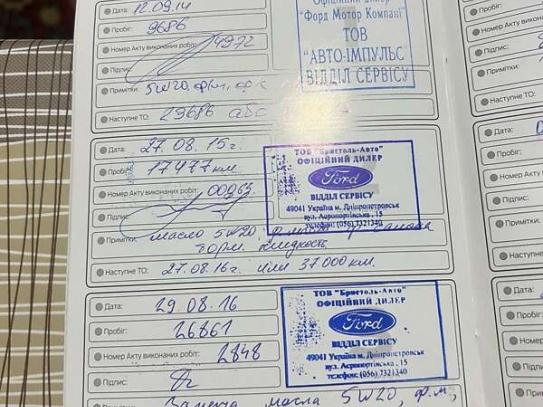 Дата: 12.09.14
Офіційний дилер
"Форд Мотор Компані"
ТОВ
"АВТО-ІМПУЛЬС"
ВІДДІЛ СЕРВІСУ
Пробіг: 9686
Номер Акту виконаних робіт: 4972
Підпис:
Примітки: 5W20, ф/м,
Наступне ТО: 29686 або
Дата: 27.08.15г.
ТОВ "Бристоль-Авто"
ОФІЦІЙНИЙ ДИЛЕР
Ford
ВІДДІЛ СЕРВІСУ
49041 Україна м. Дніпропетровськ
вул. Аеропортівська, 15
телефон: (056) 7321340
Пробіг: 17477 км.
Номер Акту виконаних робіт: 00963
Підпис:
Примітки: масло 5W20,
торм. жидкость
Наступне ТО: 27.08.16г. или 37000 км.
Дата: 29.08.16
ТОВ "Бристоль-Авто"
ОФІЦІЙНИЙ ДИЛЕР
Ford
ВІДДІЛ СЕРВІСУ
49041 Україна м. Дніпропетровськ
вул. Аеропортівська, 15
телефон: (056) 7321340
Пробіг: 26861
Номер Акту виконаних робіт: 2848
Підпис:
Замена масла 5W20, ф.м,
Підпис:
Примітки:
Наступне
Дата:
Пробіг:
Номер
Підпис:
Примітки
Наступне
Дата:
Пробіг:
Номер
Підпис: